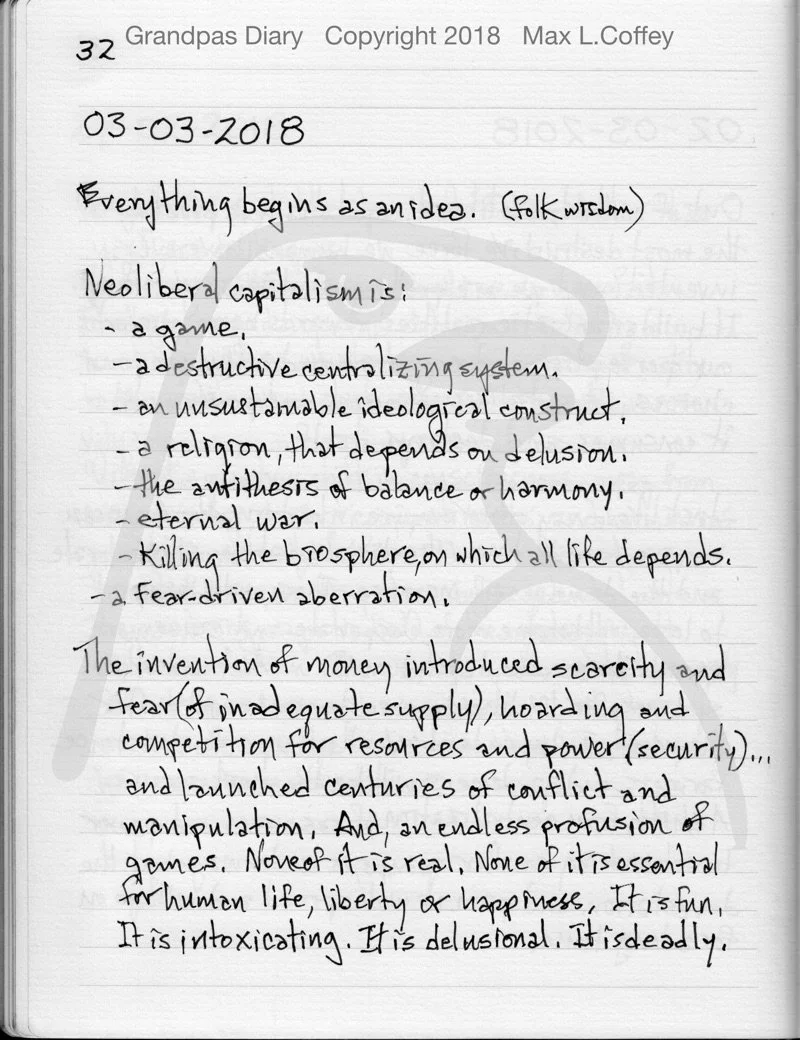 32 Grandpas Diary Copyright 2018 Max L.Coffey
03-03-2018
Everything begins as an idea. (folk wisdom)
Neoliberal capitalism is:
- a game.
- a destructive centralizing system.
- an unsustainable ideological construct.
- a religion, that depends on delusion.
- the antithesis of balance or harmony.
- eternal war.
- killing the biosphere, on which all life depends.
- a fear-driven aberration.
The invention of money introduced scarcity and
fear (of inadequate supply), hoarding and
competition for resources and power (security)...
and launched centuries of conflict and
manipulation. And, an endless profusion of
games. None of it is real. None of it is essential
for human life, liberty or happiness. It is fun.
It is intoxicating. It is delusional. It is deadly.